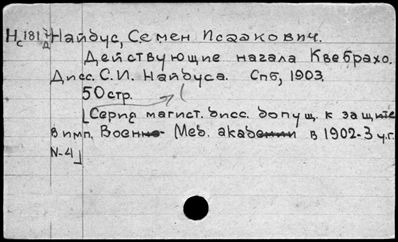 Нс 181 7/д Найдус, Семен Исаакович.
Действующие начала Квебрахо.
Дисс. С.И. Найдуса. Спб, 1903.
50 стр.
[Серия магист. дисс. допущ. к защите
в имп. Военно- Мед. академии в 1902-3 у.г.
N-4]